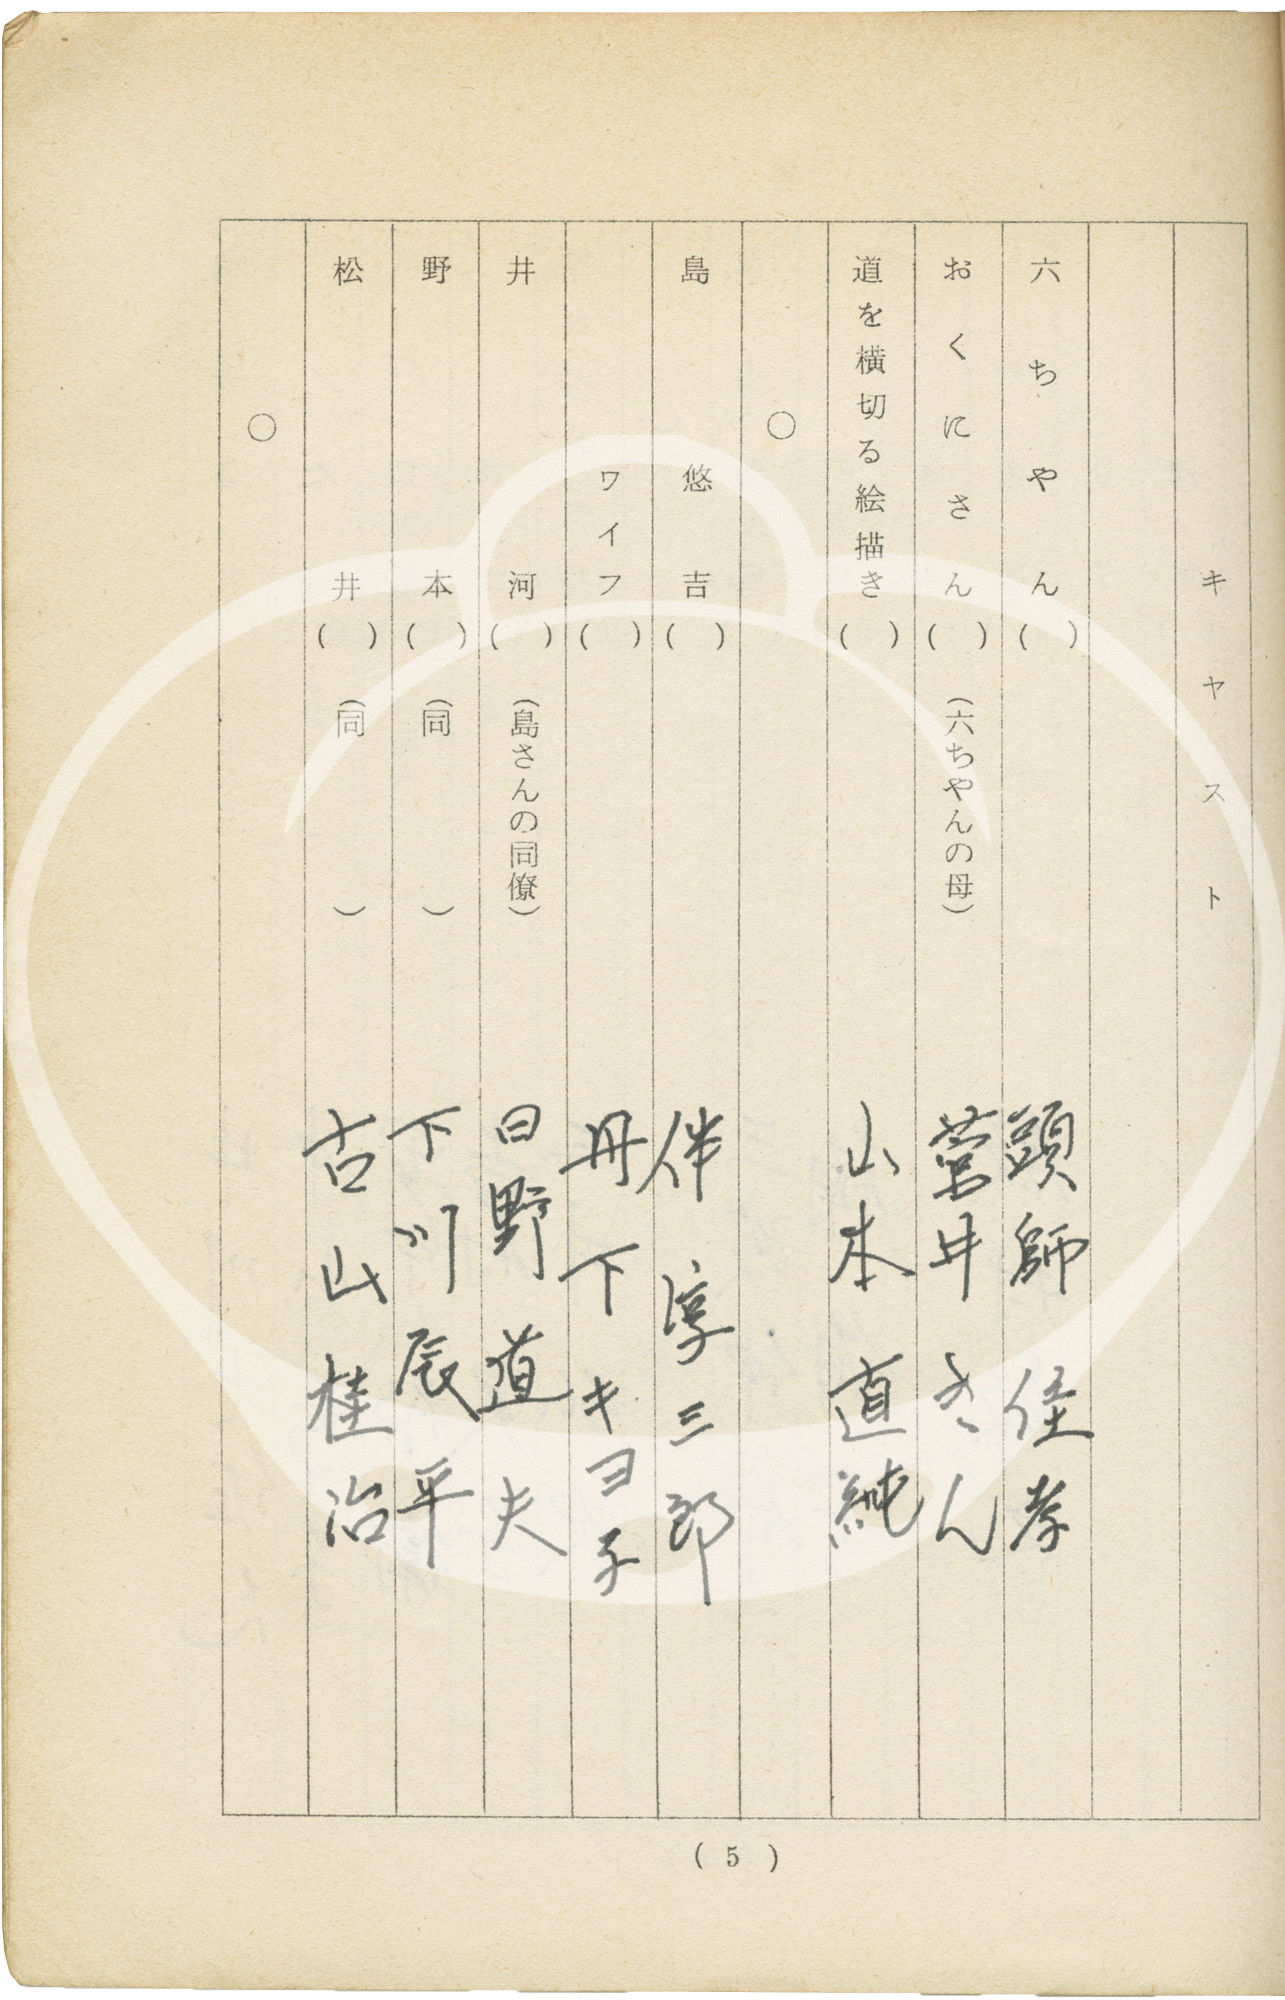 キヤスト
六ちやん( ) 頭師佳孝
おくにさん( ) (六ちやんの母) 菅井きん
道を横切る絵描き( ) 山本直純
○
島悠吉( ) 伴淳三郎
ワイフ( ) 丹下キヨ子
井河( ) (島さんの同僚) 日野道夫
野本( ) (同 ) 下川辰平
松井( ) (同 ) 古山桂治
○
( 5 )